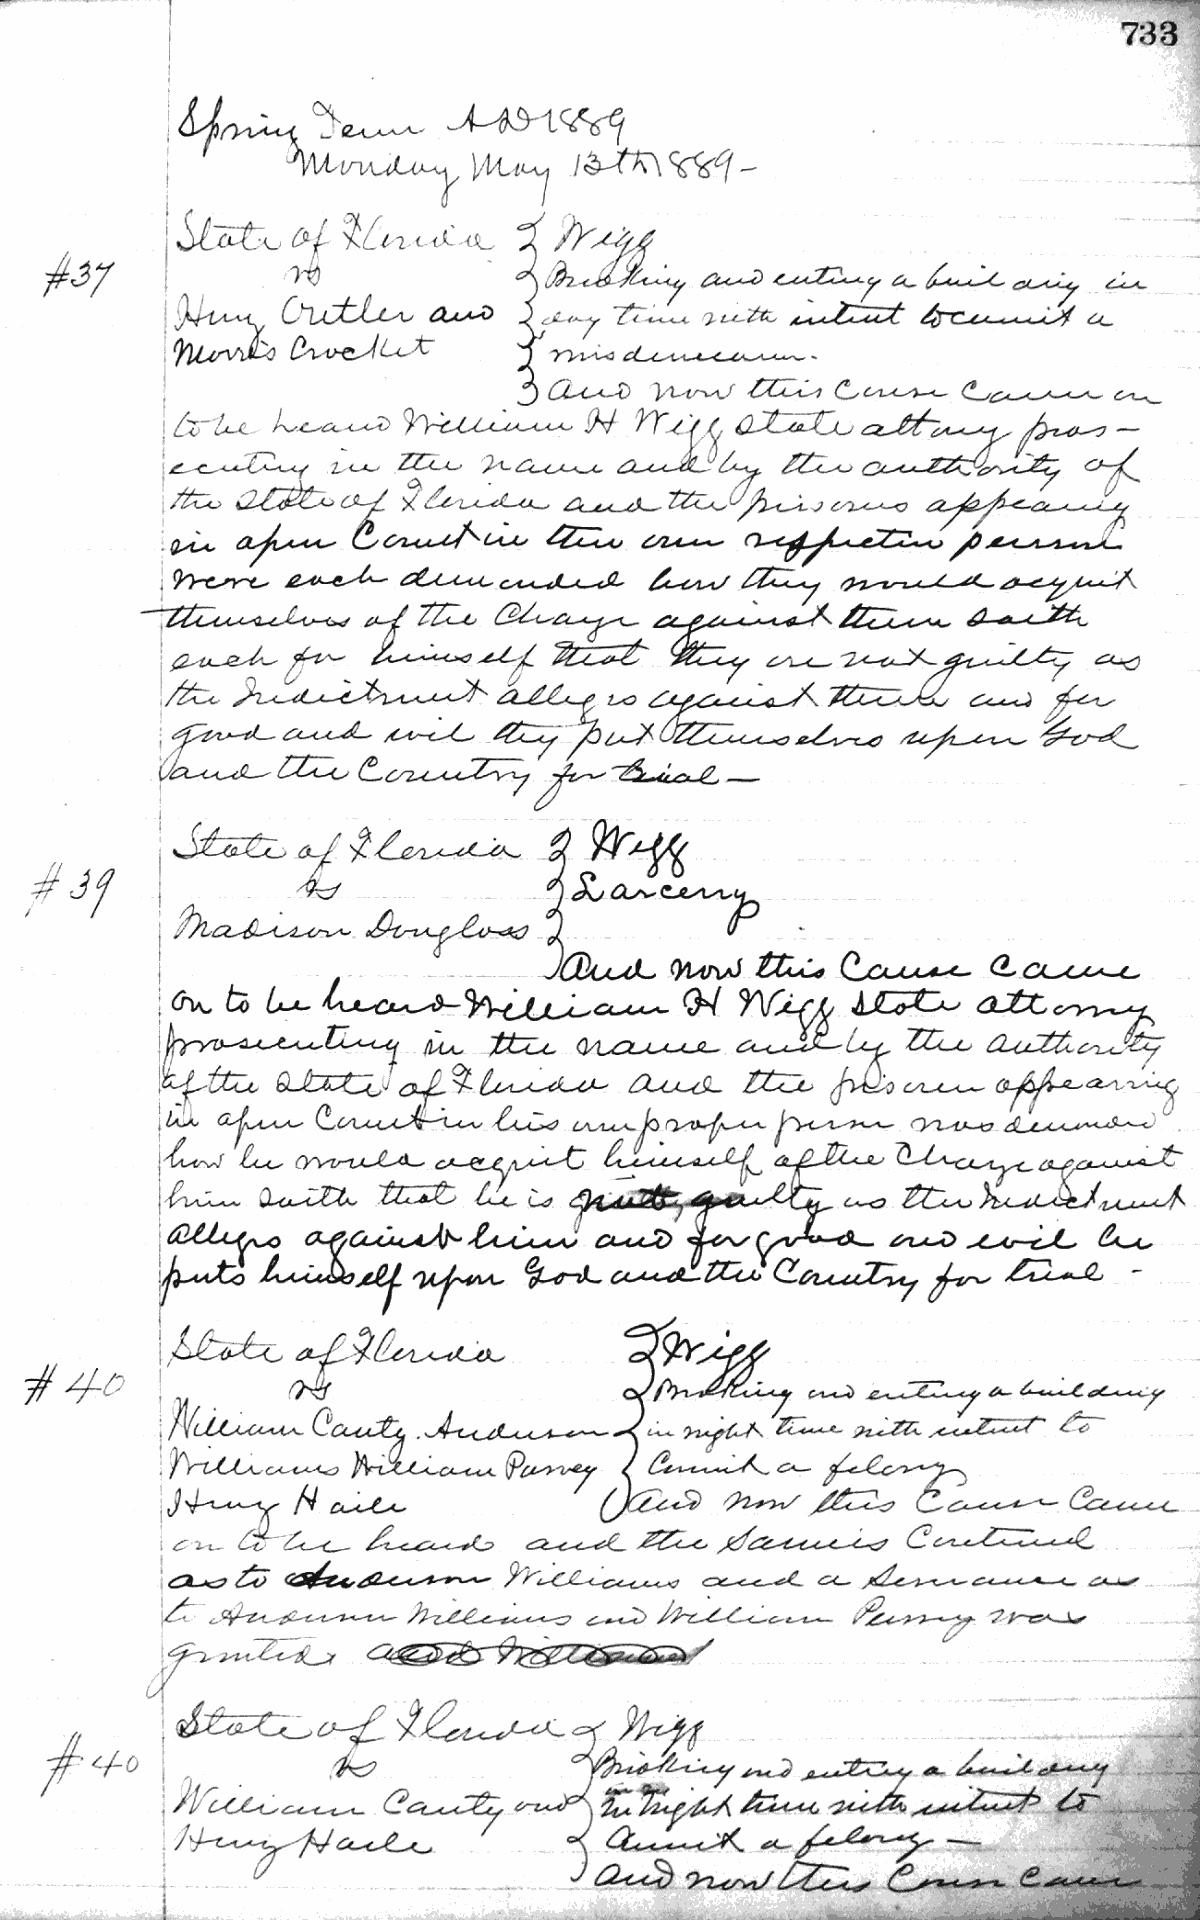 733
Spring Term A D 1889
Monday May 13th 1889 -
State of Florida Wigg
#37 vs Breaking and entering a building in
Henry Cutler and day time with intent to commit a
Morris Crocket misdemeanor.
and now this Cause Came on
to be heard William H Wigg State attorney pros-
ecuting in the name and by the authority of
the State of Florida and the prisoners appearing
in open Court in their own respective persons
were each demanded how they would acquit
themselves of the Charge against them saith
each for himself that they are not guilty as
the Indictment alleges against them and for
good and evil they put themselves upon God
and the Country for trial -
State of Florida Wigg
#39 vs Larceny
Madison Douglass
And now this Cause Came
on to be heard William H Wigg State attorney
prosecuting in the name and by the authority
of the State of Florida and the prisoner appearing
in open Court in his own proper person was demanded
how he would acquit himself of the Charge against
him saith that he is guilty as the Indictment
alleges against him and for good and evil he
puts himself upon God and the Country for trial -
State of Florida Wigg
#40 vs Breaking and entering a building
William Canty Anderson in night time with intent to
Williams William Parvey Commit a felony
Henry Haile and now this Cause Came
on to be heard and the Same is Continued
as to Anderson Williams and a Severance as
to Anderson Williams and William Parvey was
granted and
State of Florida Wigg
#40 vs Breaking and entering a building
William Canty and In Night time with intent to
Henry Haile Commit a felony -
and now this Cause Came